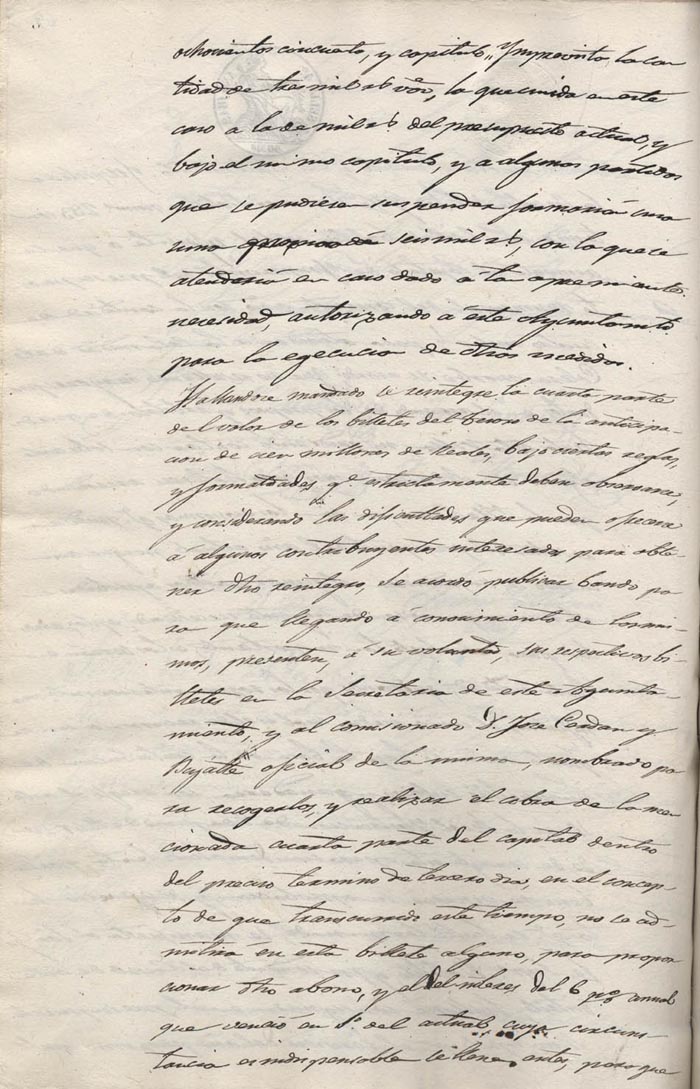 ochocientos cincuenta, y capitulo, "Ymprevisto" la can
tidad de tres mil rs von, la que unida en este
caso a la de mil rs del presupuesto actual, y
bajo el mismo capitulo, y a algunas partidas
que se pudiesen suspender formaria una
suma seis mil rs, con lo que se
atenderia en caso dado a tan apremiante
necesidad, autorizando a este Ayuntamto
para la egecucion de dhos medidos.
Hallandose mandado se reintegre la cuarta parte
del valor de los billetes del Tesoro de la anticipa-
cion de cien millones de Reales, bajo ciertas reglas,
y formalidades qe estrictamente deben observarse,
y considerando las dificultades que pueden ofrecerse
a algunos contribuyentes interesados para obte-
ner dho reintegro, se acordó publicar bando pa
ra que llegando a conocimiento de los mis-
mos, presenten, a su voluntad, sus respectivos bi-
lletes en la Secretaria de este Ayunta-
miento, y al comisionado D. Jose Cerdan y
oficial de la misma, nombrado pa
ra recogerlos, y realizar el cobro de la men
cionada cuarta parte del capital dentro
del preciso termino de tercero dia, en el concep-
to de que transcurrido este tiempo, no se ad-
mitirá en esta billete alguno, para propor
cionar dho abono, y el del interes del 6 p% anual
que venció en 1º del actual, cuya circuns-
tancia es indispensable se llene antes, para que